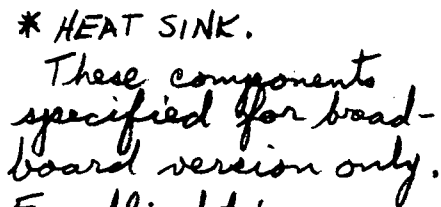 * HEAT SINK.
These components
specified for bread-
board version only.